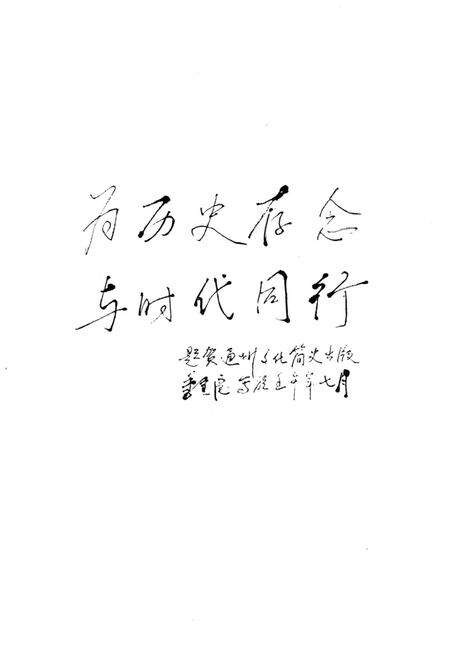 为历史存念
与时代同行
题贺通州文化简史出版
写于壬午年七月